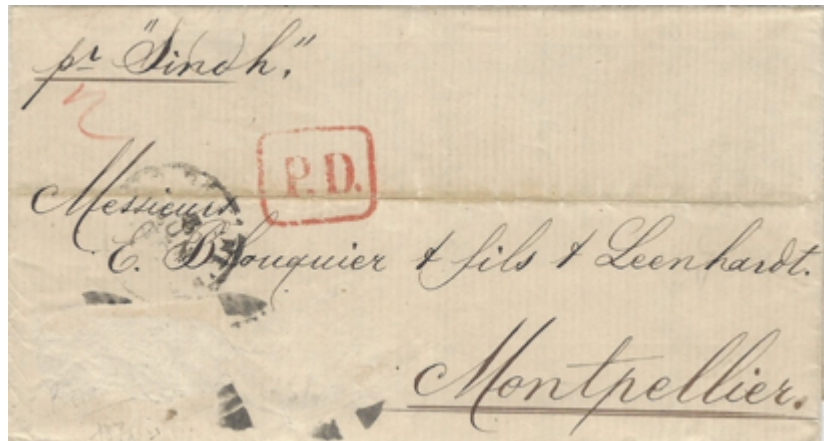 pr "Sindh",
P.D.
Messieurs
E. Bfouquier & fils & Leenhardt.
Montpellier.